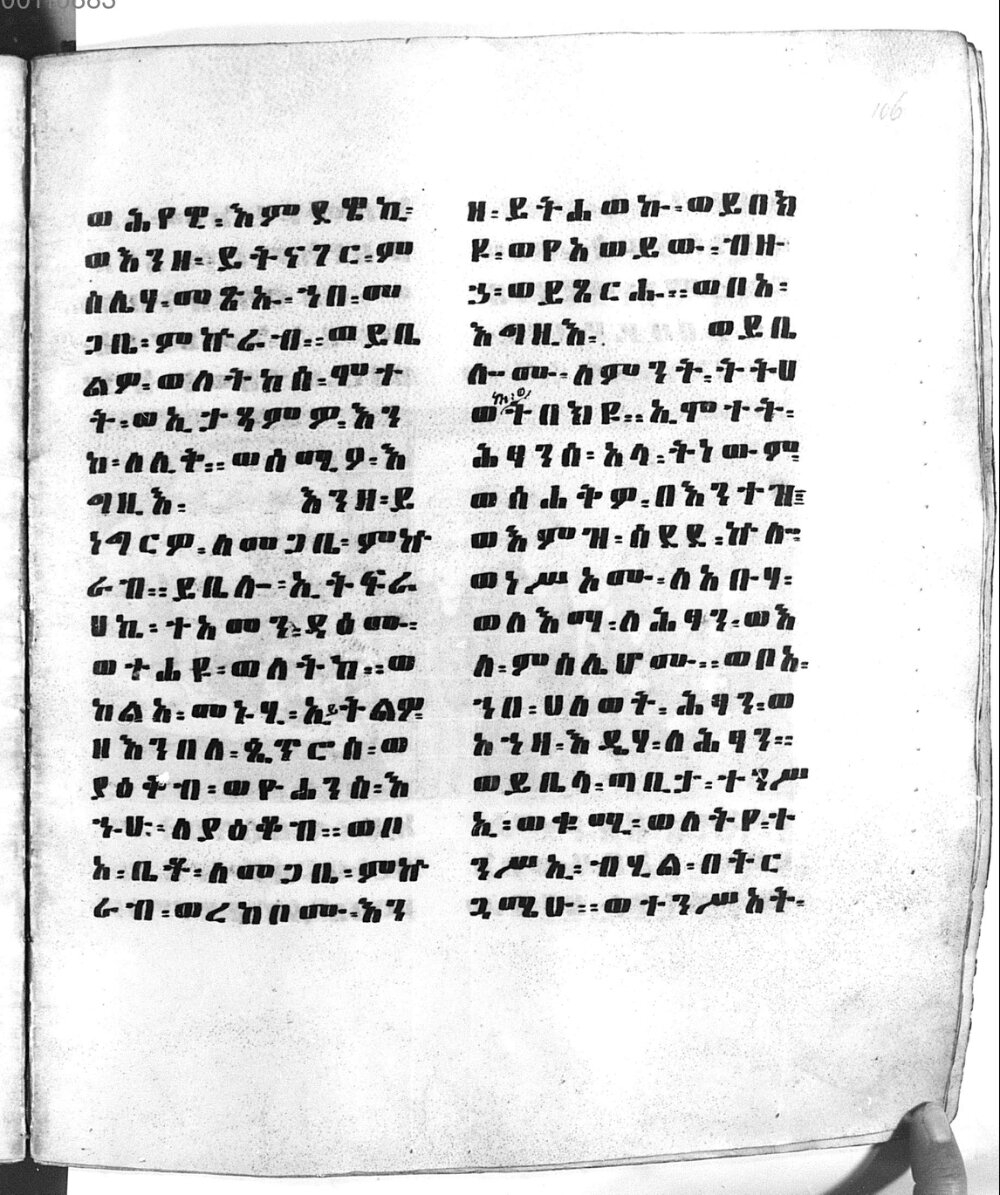 106
ወሕየዊ፡እምደዌኪ፡
ወእንዘ፡ይትናገር፡ም
ስሊሃ፡መጽኡ፡ኀበ፡መ
ጋቢ፡ምኵራብ፡፡ወይቤ
ልዎ፡ወለትከሰ፡ሞተ
ት፡ወኢታፃምዎ፡እን
ከ፡ለሊቅ፡፡ወሰሚዖ፡እ
ግዚእ፡ እንዘ፡ይ
ነግርዎ፡ለመጋቤ፡ምኵ
ራብ፡፡ይቤሎ፡ኢትፍራ
ህኬ፡ተአመን፡ዳዕሙ፡
ወተሐዩ፡ወለትከ፡፡ወ
ከልአ፡መኑሂ፡ኢይትልዎ፡
ዘእንበለ፡ጴጥሮስ፡ወ
ያዕቆብ፡ወዮሐንስ፡እ
ኁሁ፡ለያዕቆብ፡፡ወቦ
አ፡ቤቶ፡ለመጋቤ፡ምኵ
ራብ፡ወረከቦሙ፡እን
ዘ፡ይትሐወኩ፡ወይበክ
ዩ፡ወየአወይዉ፡ብዙ
ኃ፡ወይጼርሑ፡፡ወበአ፡
እግዚእ፡ ወይቤ
ሎሙ፡ለምንት፡ትትሀ
ወ
ት በክዩ፡፡ኢሞተት፡
ሕፃንሰ፡አላ፡ትነውም፡
ወሰሐቅዎ፡በእንተዝ፡
ወእምዝ፡ሰደደ፡ኵሎ፡
ወነሥአሙ፡ለአቡሃ፡
ወለእማ፡ለሕፃን፡ወእ
ለ፡ምስሌሆሙ፡፡ወቦአ፡
ኀበ፡ሀለወት፡ሕፃን፡ወ
አኀዛ፡እዴሃ፡ለሕፃን፡፡
ወይቤላ፡ጣቢታ፡ተንሥ
ኢ፡ወቁሚ፡ወለትየ፡ተ
ንሥኢ፡ብሂል፡በትር
ጓሜሁ፡፡ወተንሥአት፡